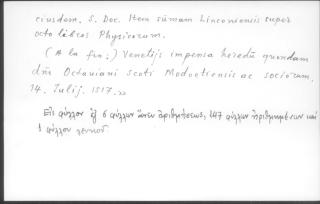 eiusdem. S. Doc. Item sūmam Linconiensis super
octo libros Physicorum.
(A la fin:) Venetijs impensa heredū quondam
dn̄i Octaviani Scoti Modoetiensis ac sociorum,
14. Julij. 1517.»
Εἷς φύλλον ἐξ 6 φύλλων ἄνευ ἀριθμήσεως, 147 φύλλων ἠριθμημένων καὶ
1 φύλλον λευκοῦ.